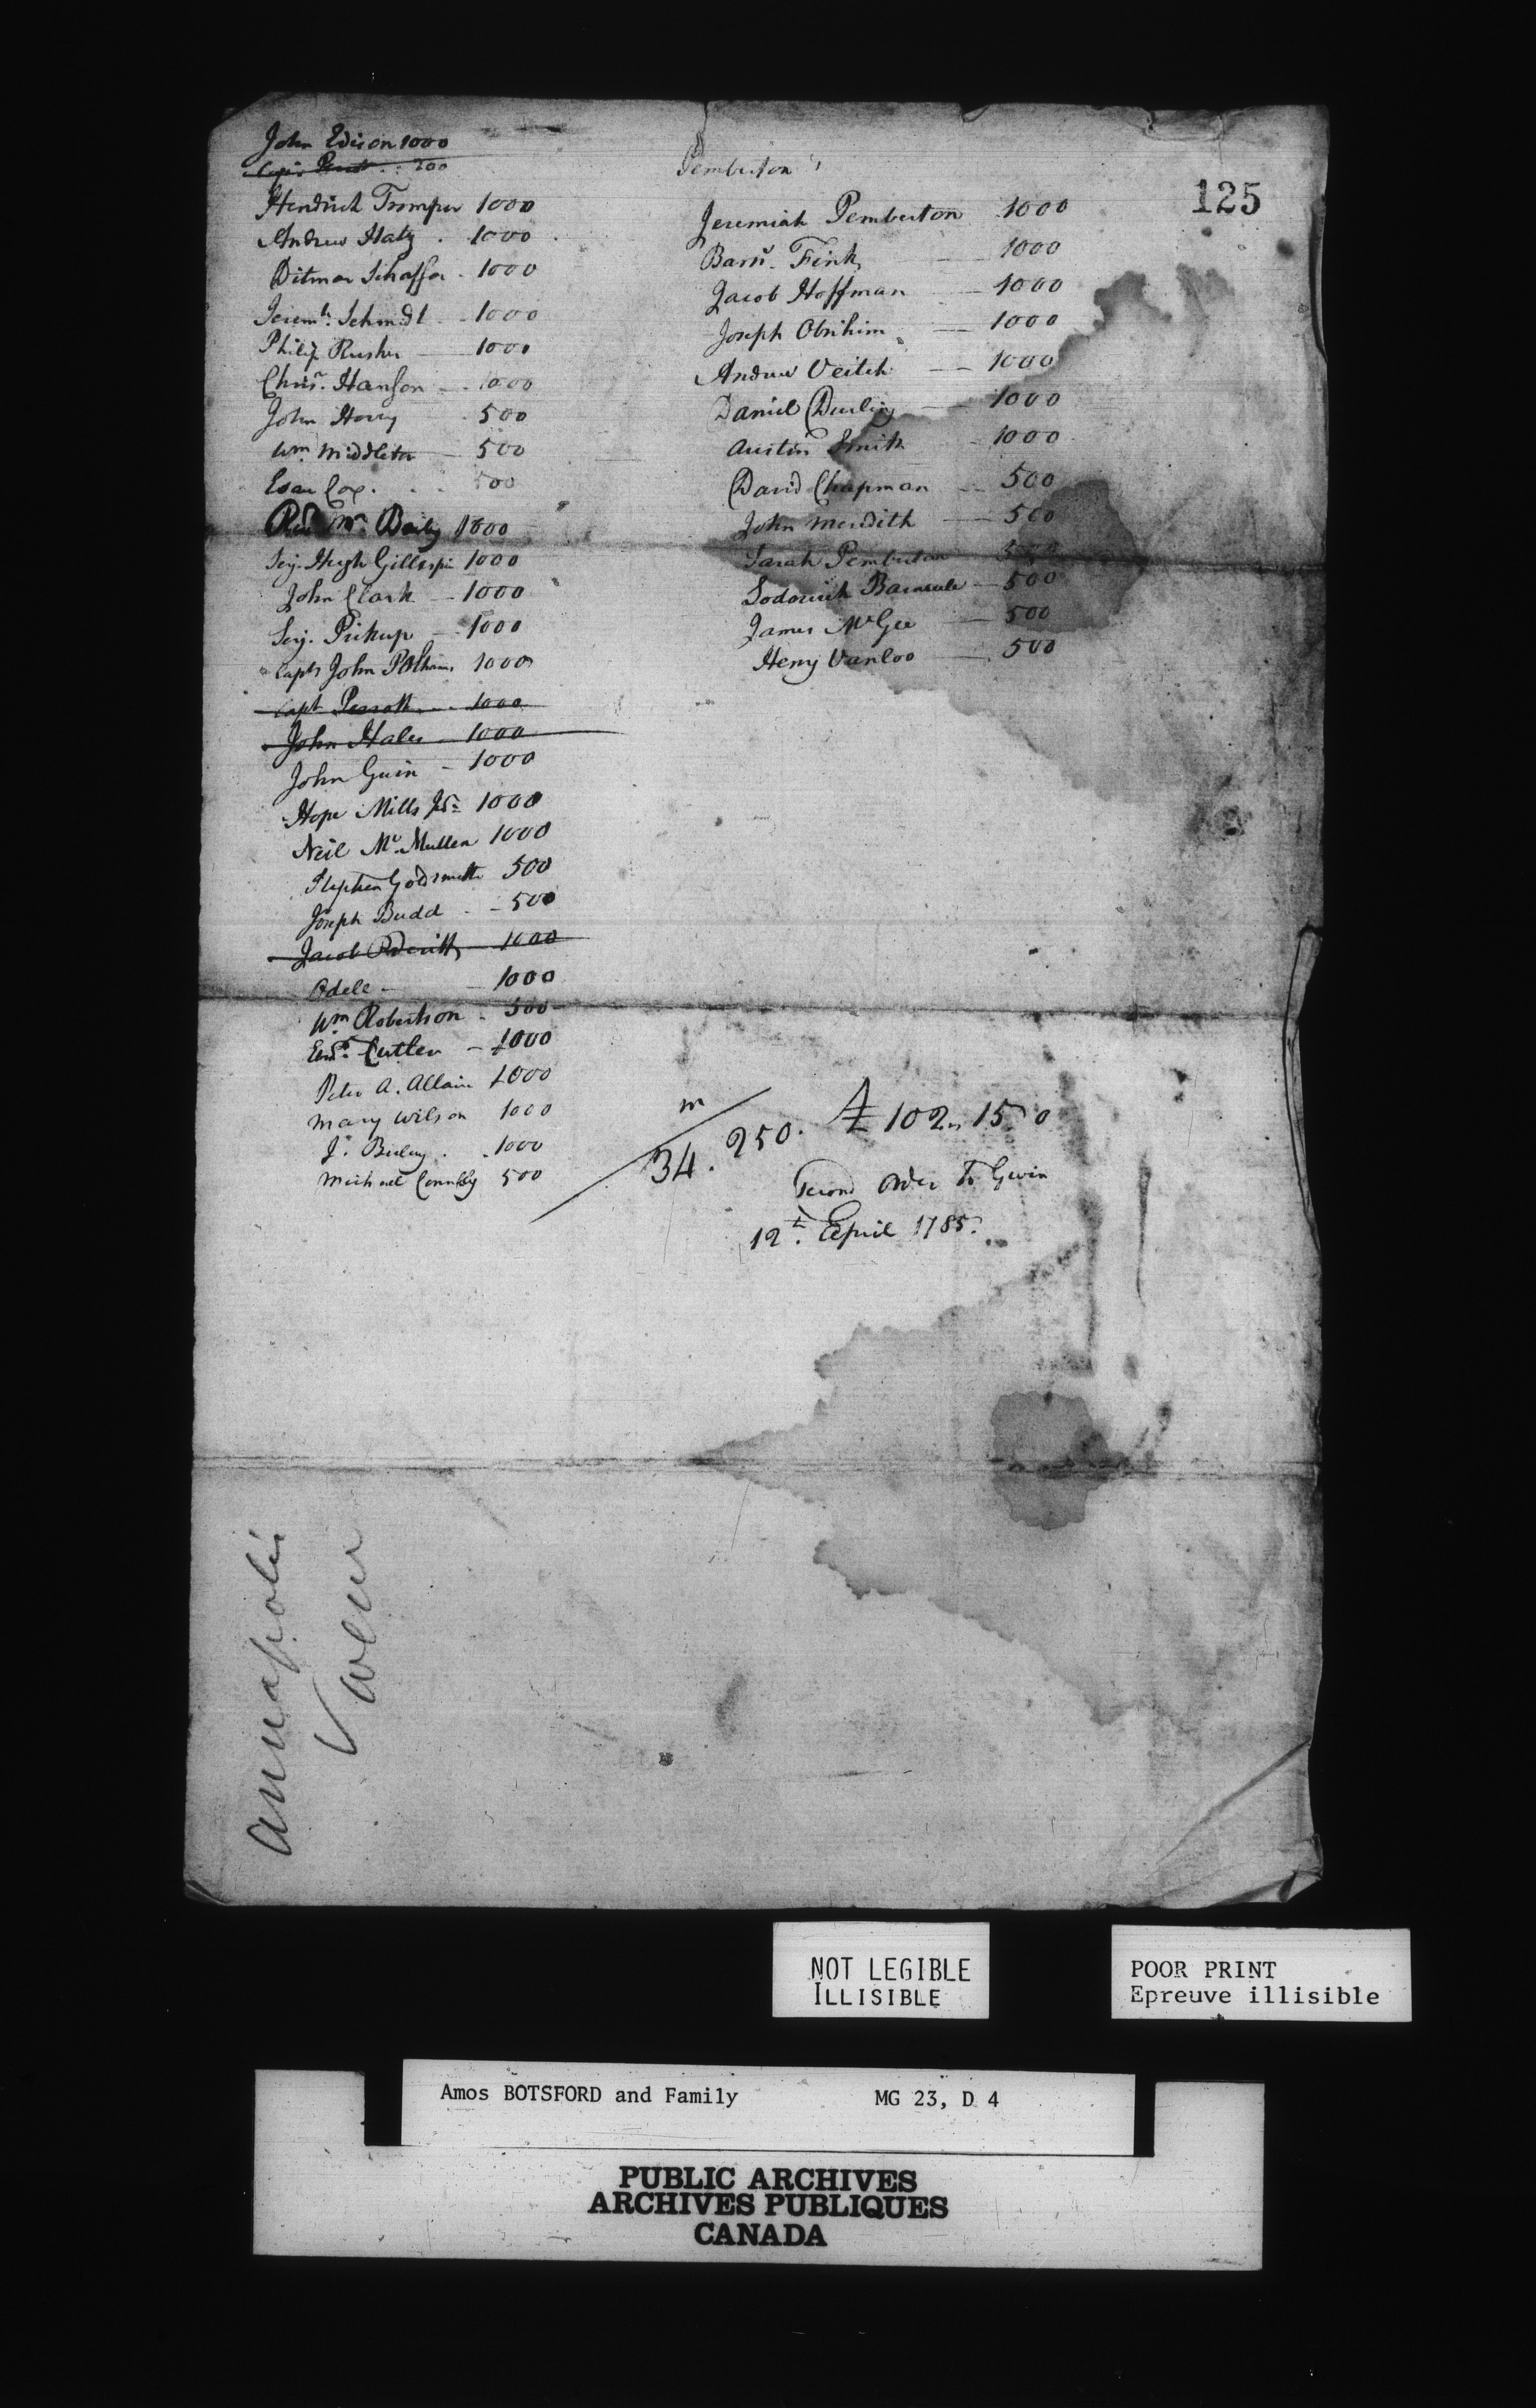 John Edison 1000
Capt. 200
Hendrick Tromper 1000
Andrew Haly . 1000
Ditmar Schaffer . 1000
Jeremh. Schmidt . 1000
Philip Rusher — 1000
Chrisr. Hanson — 1000
John Horry . 500
Wm. Middleton — 500
Esau Cox . . 500
Revd. Mr. Baily 1000
Serj. Hugh Gillespie 1000
John Clark — 1000
Serj. Pickup — 1000
Capt. John Polhams 1000
Capt Perrott . . 1000
John Hales — 1000
John Guin — 1000
Hope Mills Jr. 1000
Neil Mc.Mullen 1000
Stephen Godsmith 500
Joseph Budd . — 500
Jacob 1000
Odell — — 1000
Wm. Robertson . 500
Ebnr. Cutler — 1000
Peter A. Allair 1000
Mary Wilson 1000
Js. Bailey . . 1000
Michael Connoly 500
Pemberton's
125
Jeremiah Pemberton 1000
Barnd. Fink — 1000
Jacob Hoffman — 1000
Joseph — 1000
Andrew Veitch — 1000
Daniel Durling — 1000
Austin Smith - 1000
David Chapman — 500
John Meredith — 500
Sarah Pemberton 500
Lodowick Barnsule — 500
James McGee — 500
Henry Vanloo — 500
m
34. 250. £ 102,, 15. 0
Second order to Gwin
12th. April 1785.
Annapolis
NOT LEGIBLE
ILLISIBLE
POOR PRINT
Epreuve illisible
Amos BOTSFORD and Family MG 23, D 4
PUBLIC ARCHIVES
ARCHIVES PUBLIQUES
CANADA